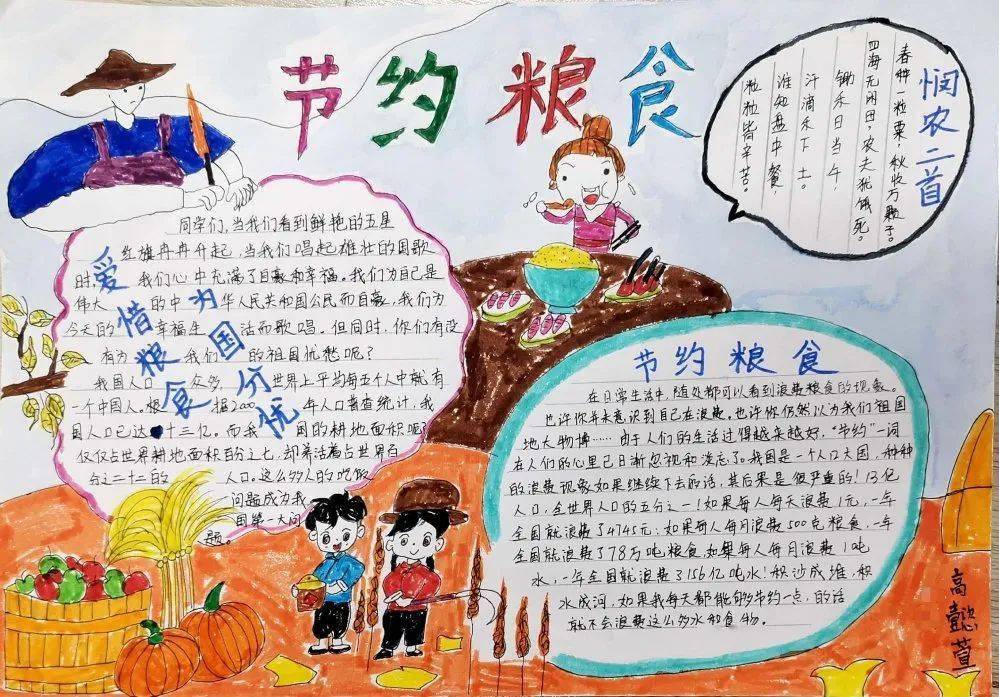 节约粮食
悯农二首
春种一粒粟，秋收万颗子。
四海无闲田，农夫犹饿死。
锄禾日当午，
汗滴禾下土。
谁知盘中餐，
粒粒皆辛苦。
爱惜粮食
为国分忧
同学们，当我们看到鲜艳的五星
红旗冉冉升起，当我们唱起雄壮的国歌
时，我们心中充满了自豪和幸福。我们为自己是
伟大的中华人民共和国公民而自豪，我们为
今天的幸福生活而歌唱。但同时，你们有没
有为我们的祖国忧愁呢？
我国人口众多，世界上平均每五个人中就有
一个中国人。根据2000年人口普查统计，我
国人口已达十三亿。而我国的耕地面积呢？
仅仅占世界耕地面积百分之七，却养活着占世界百
分之二十二的人口。这么多人的吃饭
问题成为我
国第一大问
题。
节约粮食
在日常生活中，随处都可以看到浪费粮食的现象。
也许你并未意识到自己在浪费，也许你仍然以为我们祖国
地大物博……由于人们的生活过得越来越好，“节约”一词
在人们的心里已日渐忽视和淡忘了。我国是一个人口大国，种种
的浪费现象如果继续下去的话，其后果是很严重的！13亿
人口，全世界人口的五分之一！如果每人每天浪费1元，一年
全国就浪费了4745元；如果每人每月浪费500克粮食，一年
全国就浪费了78万吨粮食，如果每人每月浪费1吨
水，一年全国就浪费了156亿吨水！积沙成堆，积
水成河，如果我每天都能够节约一点，的话
就不会浪费这么多水和食物。
高懿萱